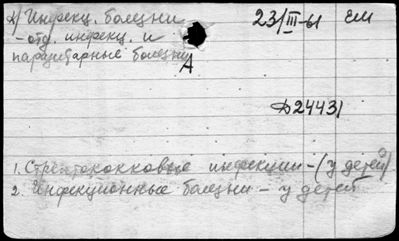 к) Инфекц. болезни 23/III-61 ем
- отд. инфекц. и
паразитарные болезни
А
Д24431
1. Стрептококковые инфекции - (у детей)
2. Инфекционные болезни - у детей